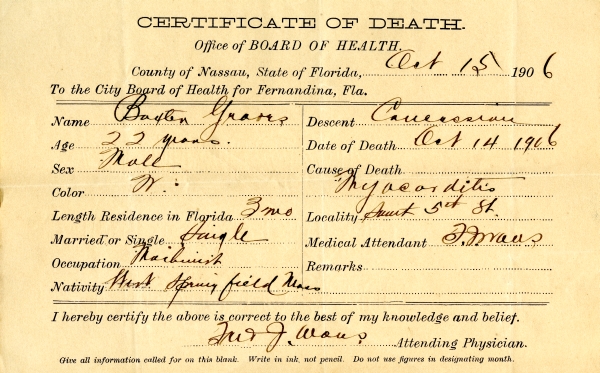 CERTIFICATE OF DEATH.
Office of BOARD OF HEALTH,
County of Nassau, State of Florida, Oct 15 1906
To the City Board of Health for Fernandina, Fla.
Name Baxter Graves
Age 22 years.
Sex Male
Color W.
Length Residence in Florida 3 mo
Married or Single Single
Occupation Machinist
Nativity West Springfield Mass
Descent Caucassian
Date of Death Oct 14 1906
Cause of Death
Myocarditis
Locality 5th St.
Medical Attendant
Remarks
I hereby certify the above is correct to the best of my knowledge and belief.
Fred J. Attending Physician.
Give all information called for on this blank. Write in ink, not pencil. Do not use figures in designating month.